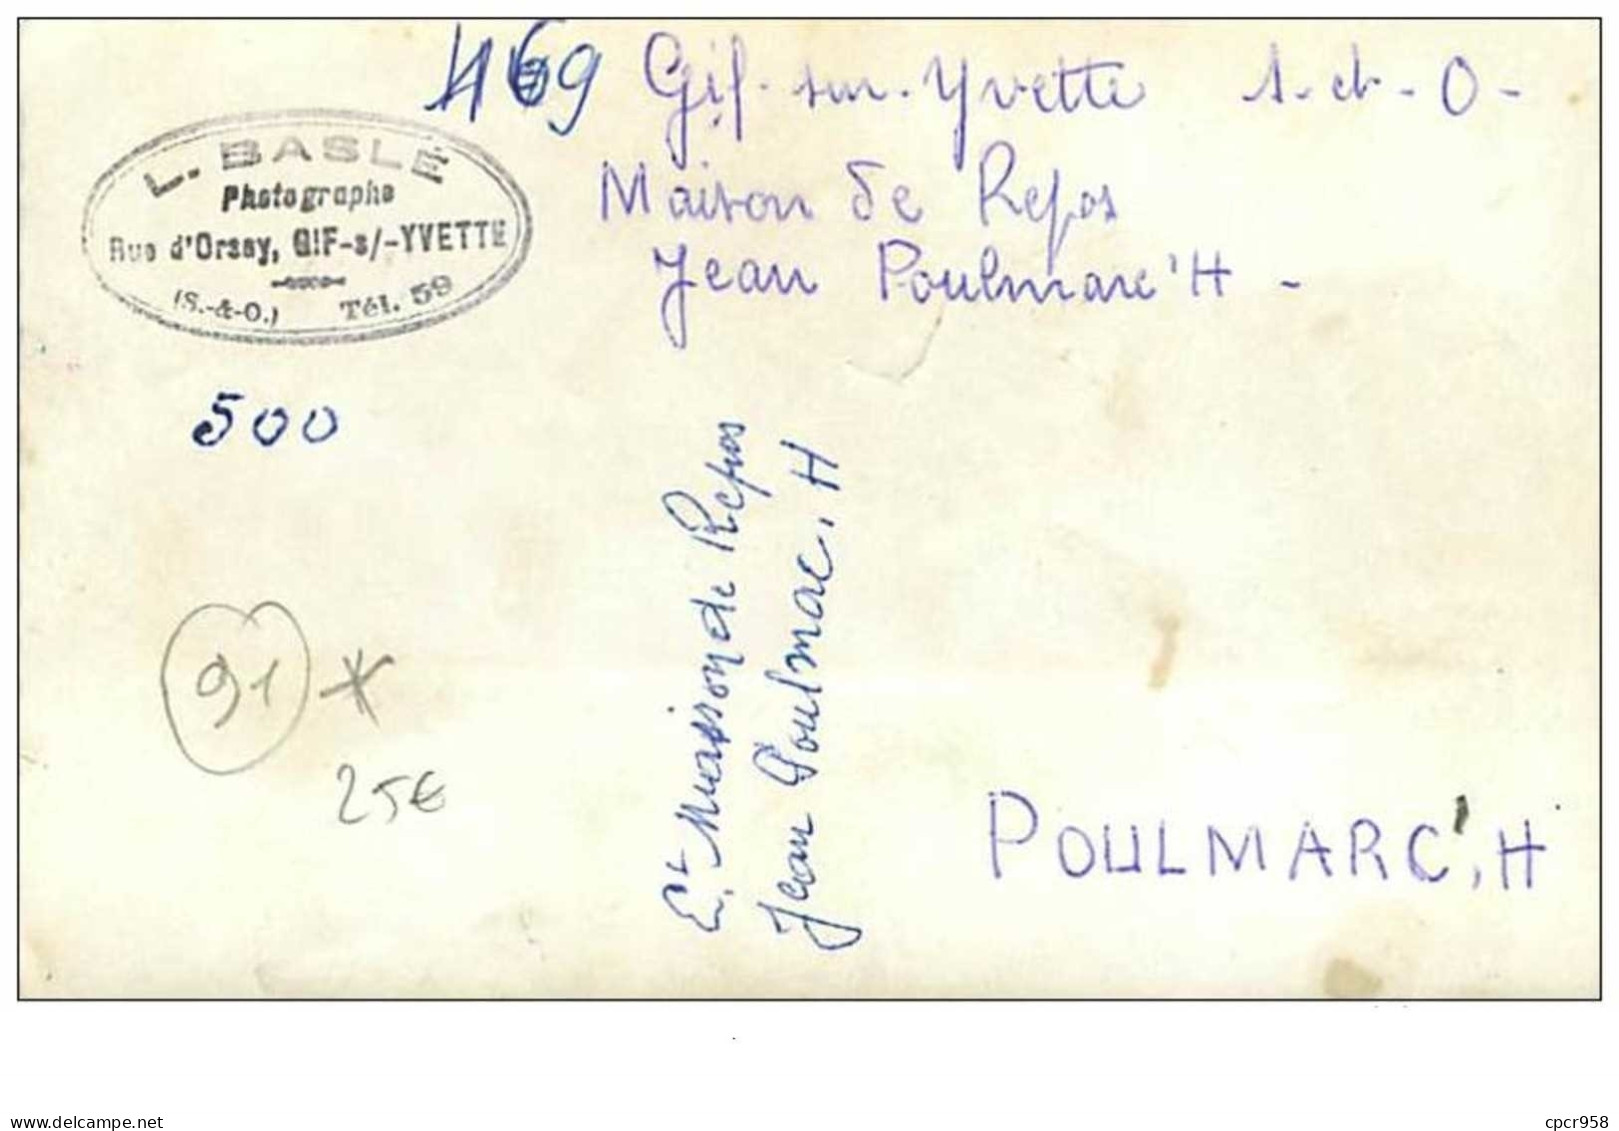 469 Gif-sur-Yvette S-et-O-
Maison de Repos
Jean Poulmarc'H -
L. BASLÉ
Photographe
Rue d'Orsay, GIF-s/-YVETTE
(S.-&-O.) Tél. 59
500
Et Maison de Repos
Jean Poulmac, H
91 *
25€
POULMARC'H
delcampe.net
cpcr958